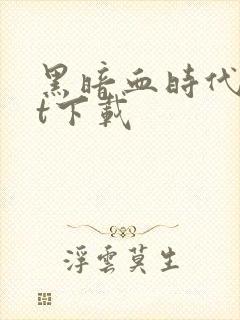 黑暗血時代
t下載
浮雲莫生